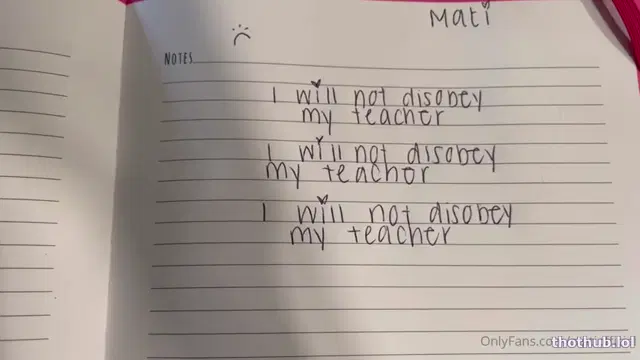 Mati
NOTES
I will not disobey
my teacher
I will not disobey
my teachor
I will not disobey
my teacher
thothub.lol